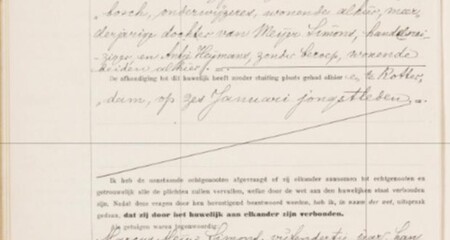 bosch, onderwijzeres, wonende alhier, meer-
derjarige dochter van Meijer Simons, handelsrei-
ziger, en Antje Heijmans, zonder beroep, wonende
beiden alhier.
De afkondiging tot dit huwelijk heeft zonder stuiting plaats gehad alhier en te Rotter-
dam, op zes Januari jongstleden
Ik heb de aanstaande echtgenooten afgevraagd of zij elkander aannemen tot echtgenooten en
getrouwelijk alle de plichten zullen vervullen, welke door de wet aan den huwelijken staat verbonden
zijn. Nadat deze vragen door hen bevestigend beantwoord werden, heb ik, in naam der wet, uitspraak
gedaan, dat zij door het huwelijk aan elkander zijn verbonden.
Als getuigen waren tegenwoordig:
Simons, vijfendertig jaar, kan